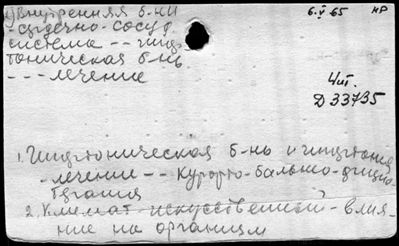 1) Внутренняя б-ни
6.V 65 НР
- сердечно-сосуд
система -- гипер
тоническая б-нь
--- лечение
Чит.
Д 33735
1. Гипертоническая б-нь и гипертония
- лечение -- курорто-бально-физио-
терапия
2. Климат искусственный - влия-
ние на организм